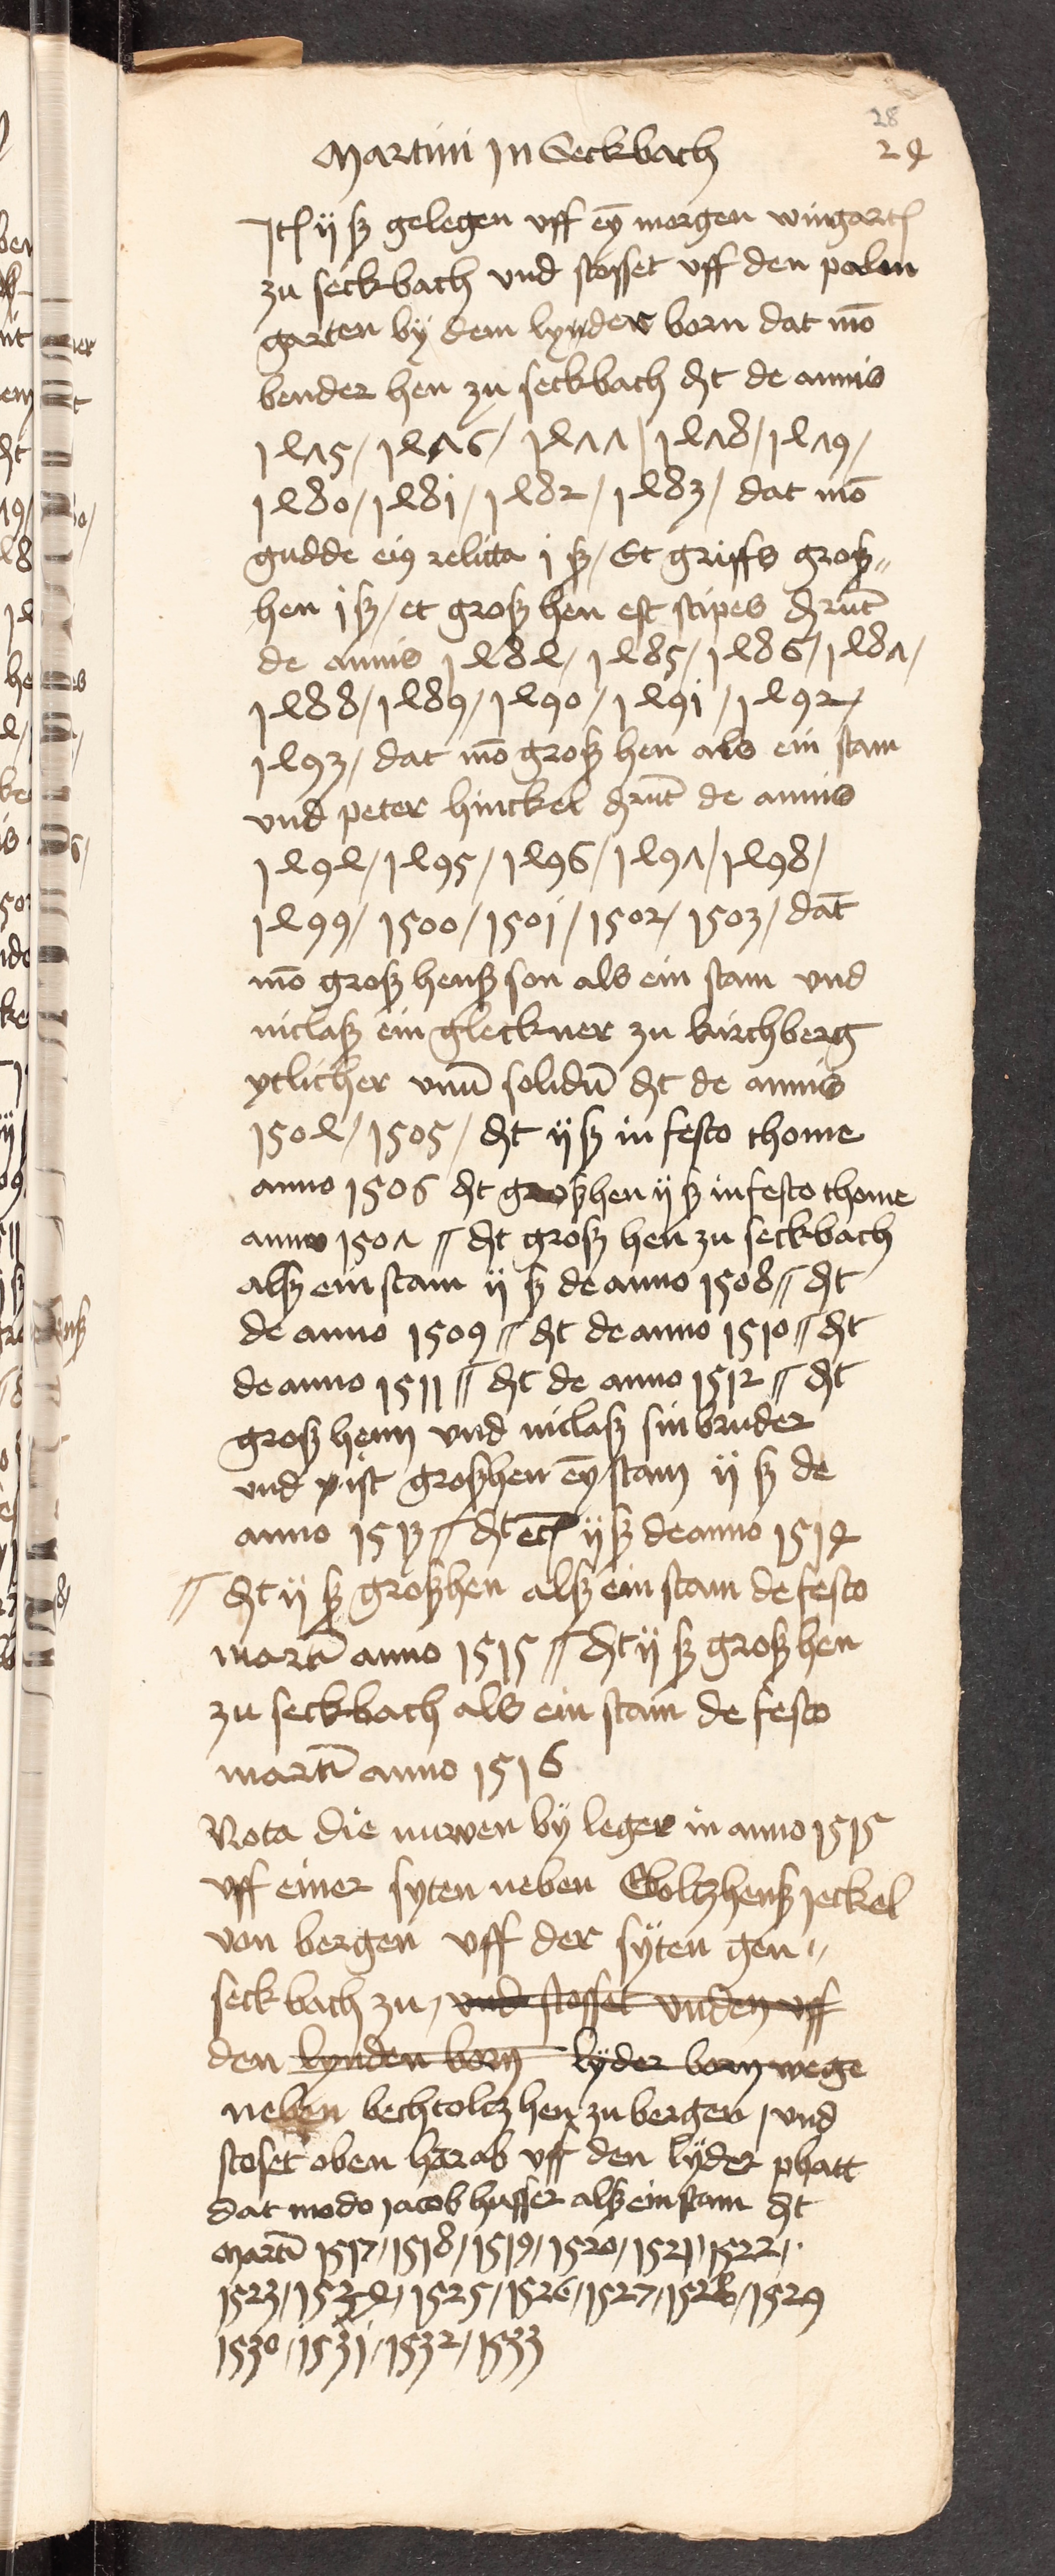 28
24
Martini In Seckbach
Itē ij ß gelegen vff eȳ morgen wingartē
zu seckbach vnd stosset vff den palm
garten bÿ dem lynder born dat mō
bender hen zu seckbach dt de annis
1475/ 1476/ 1477/ 1478/ 1479/
1480/ 1481/ 1482/ 1483/ dat mō
gudde eiꝰ relicta j ß/ Et griffs groß„
hen j ß/ et groß hen est stipes drūt
de annis 1484/ 1485/ 1486/ 1487/
1488/ 1489/ 1490/ 1491/ 1492/
1493/ dat mō groß hen als ein stam
vnd peter hinckel drūt de annis
1494/ 1495/ 1496/ 1497/ 1498/
1499/ 1500/ 1501/ 1502/ 1503/ dāt
mō groß henß son als ein stam vnd
niclaß ein gleckner zu kirchberg
ytlicher vnū solidū dt de annis
1504/ 1505/ dt ij ß in festo thome
anno 1506 dt großhen ij ß in festo thome
anno 1507 // dt groß hen zu seckbach
alß ein stam ij ß de anno 1508 // dt
de anno 1509 // dt de anno 1510 // dt
de anno 1511 // dt de anno 1512 // dt
groß henn vnd niclaß sin bruder
vnd ist großhen eȳ stam ij ß de
anno 1513 // dt etc ij ß de anno 1514
// dt ij ß großhen alß ein stam de festo
martī anno 1515 // dt ij ß groß hen
zu seckbach als ein stam de festo
martī anno 1516
Nota die nuwen bÿ leger in anno 1515
vff einer syten neben Eboltzhenß jeckel
von bergen vff der sÿten gen„
seckbach zu, vnd stosset vnden vff
den lynden born lÿder born wege
neben bechtoltz hen zu bergen, vnd
stoset oben harab vff den lÿder phatt
dat modo jacob husser alß ein stam dt
martī 1517/ 1518/ 1519/ 1520/ 1521/ 1522/
1523/ 1524/ 1525/ 1526/ 1527/ 1528/ 1529
1530/ 1531/ 1532/ 1533